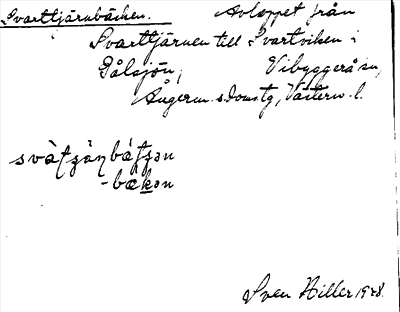 Svarttjärnbäcken. Avloppet från
Svarttjärnen till Svartviken i
Gålsjön, Vibyggerå sn,
Ångerm. s. domstg, Västern. l.
-bäkən
Sven Hiller 1928.